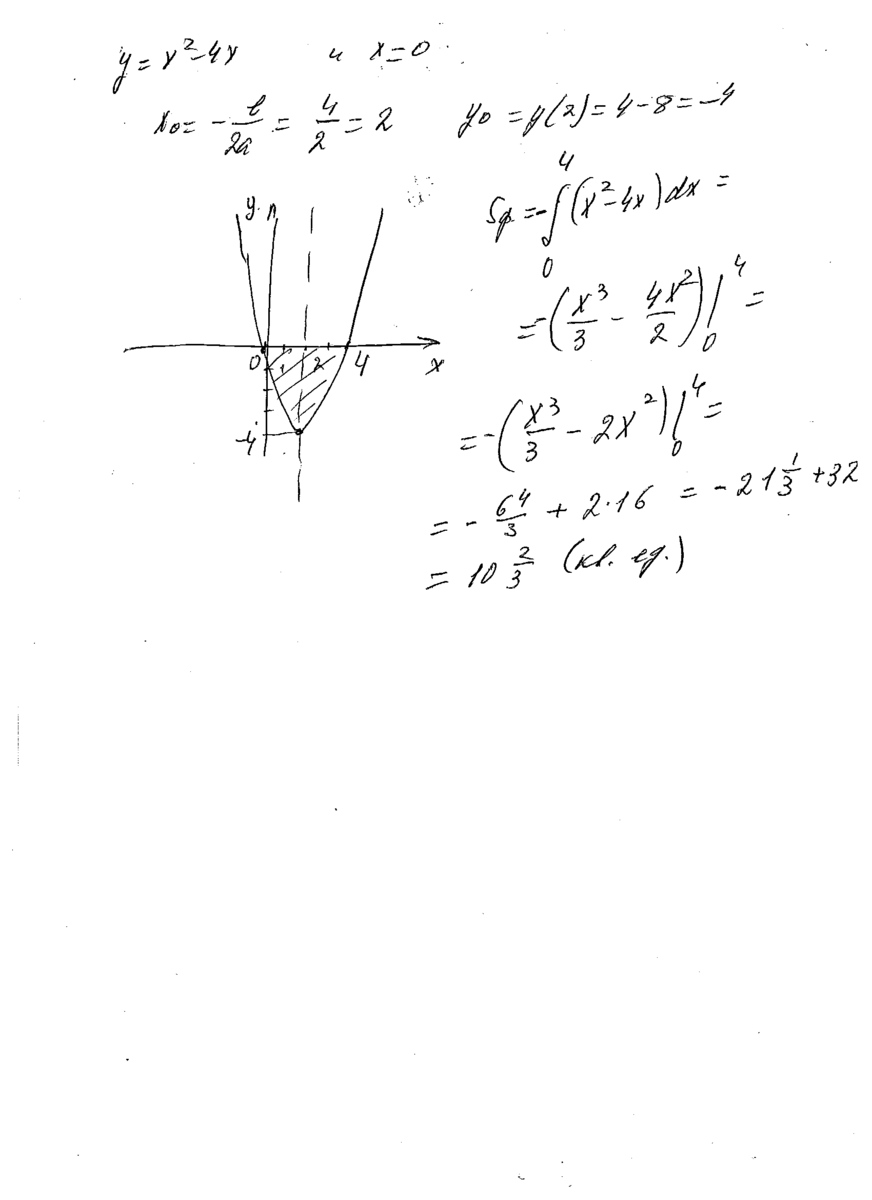 y = x² - 4x и x = 0
x₀ = -b/2a = 4/2 = 2 y₀ = y(2) = 4 - 8 = -4
Sф = -∫₀⁴ (x² - 4x) dx =
= -(x³/3 - 4x²/2) |₀⁴ =
= -(x³/3 - 2x²) |₀⁴ =
= - 64/3 + 2·16 = - 21 1/3 + 32
= 10 2/3 (кв. ед.)
y
0 1 2 4 x
-4